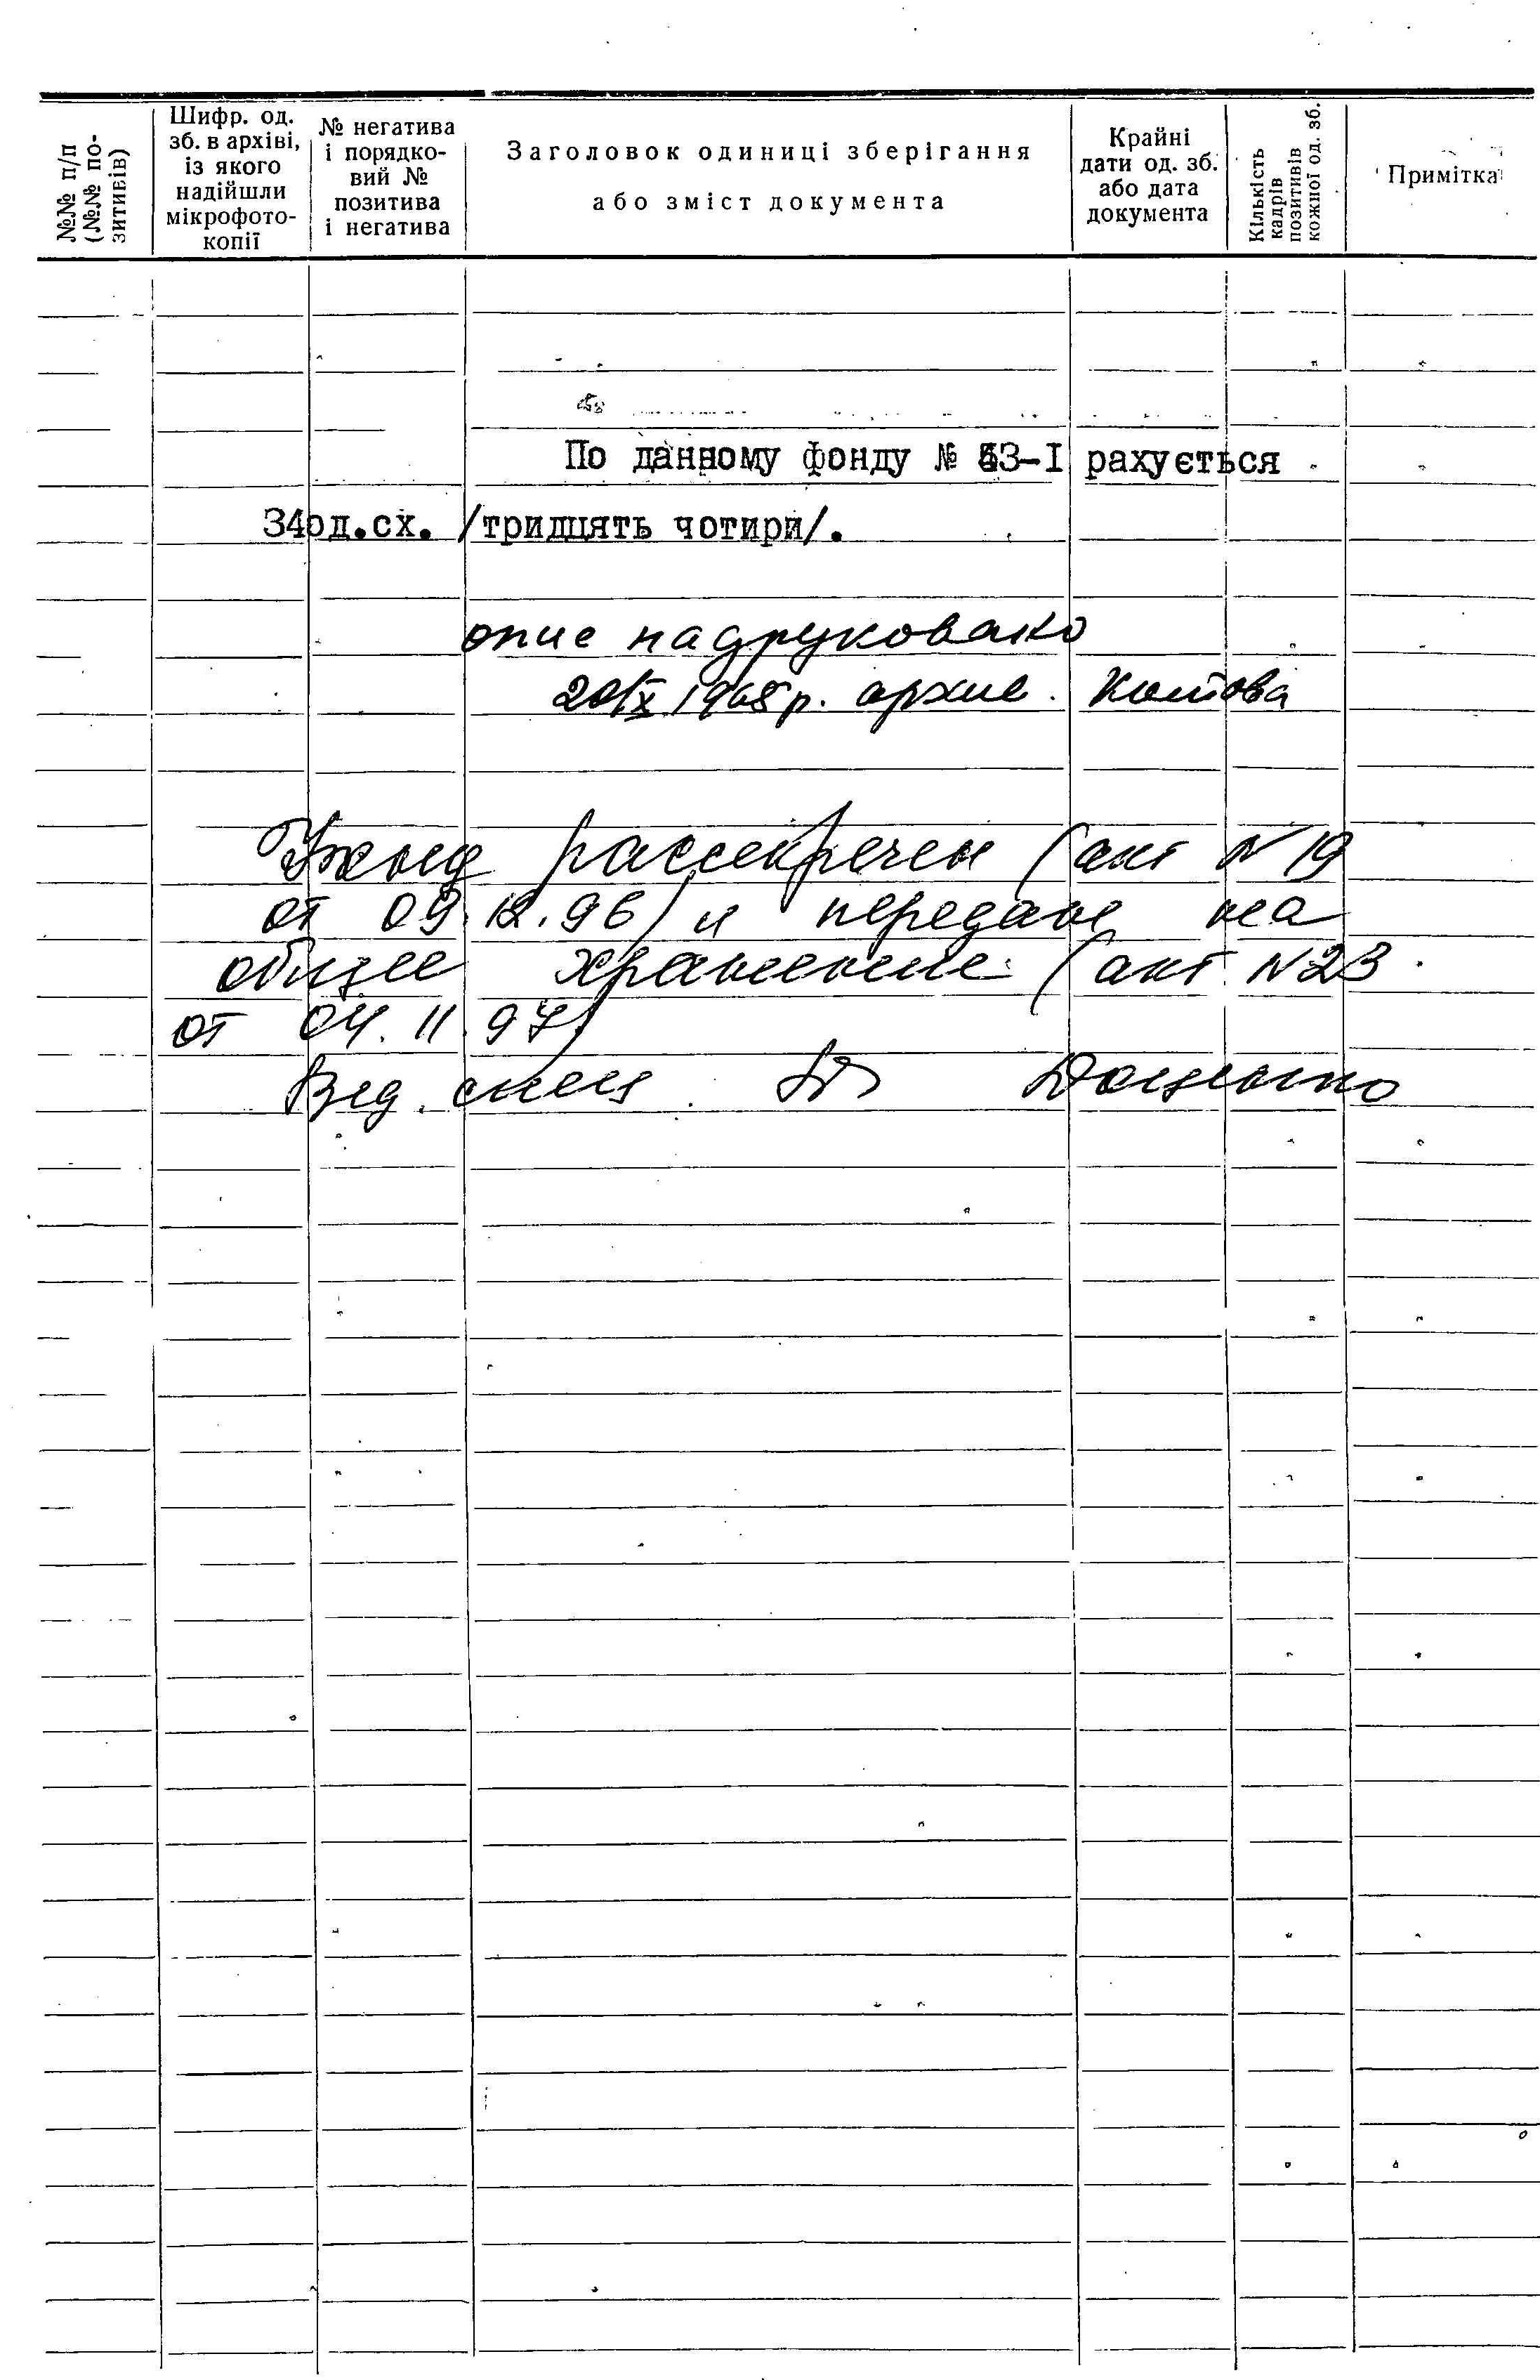 №№ п/п
(№№ по-
зитивів)
Шифр. од.
зб. в архіві,
із якого
надійшли
мікрофото-
копії
№ негатива
і порядко-
вий №
позитива
і негатива
Заголовок одиниці зберігання
або зміст документа
Крайні
дати од. зб.
або дата
документа
Кількість
кадрів
позитивів
кожної од. зб.
Примітка
По данному фонду № 53-І рахується
34од.сх. /тридцять чотири/.
опис надруковано
20/X 1968р. архив.
Фонд рассекречен (акт N 19
от 09.12.96) и передан на
общее хранение (акт N23
от 04.11.97)
Вед. спец. Доценко